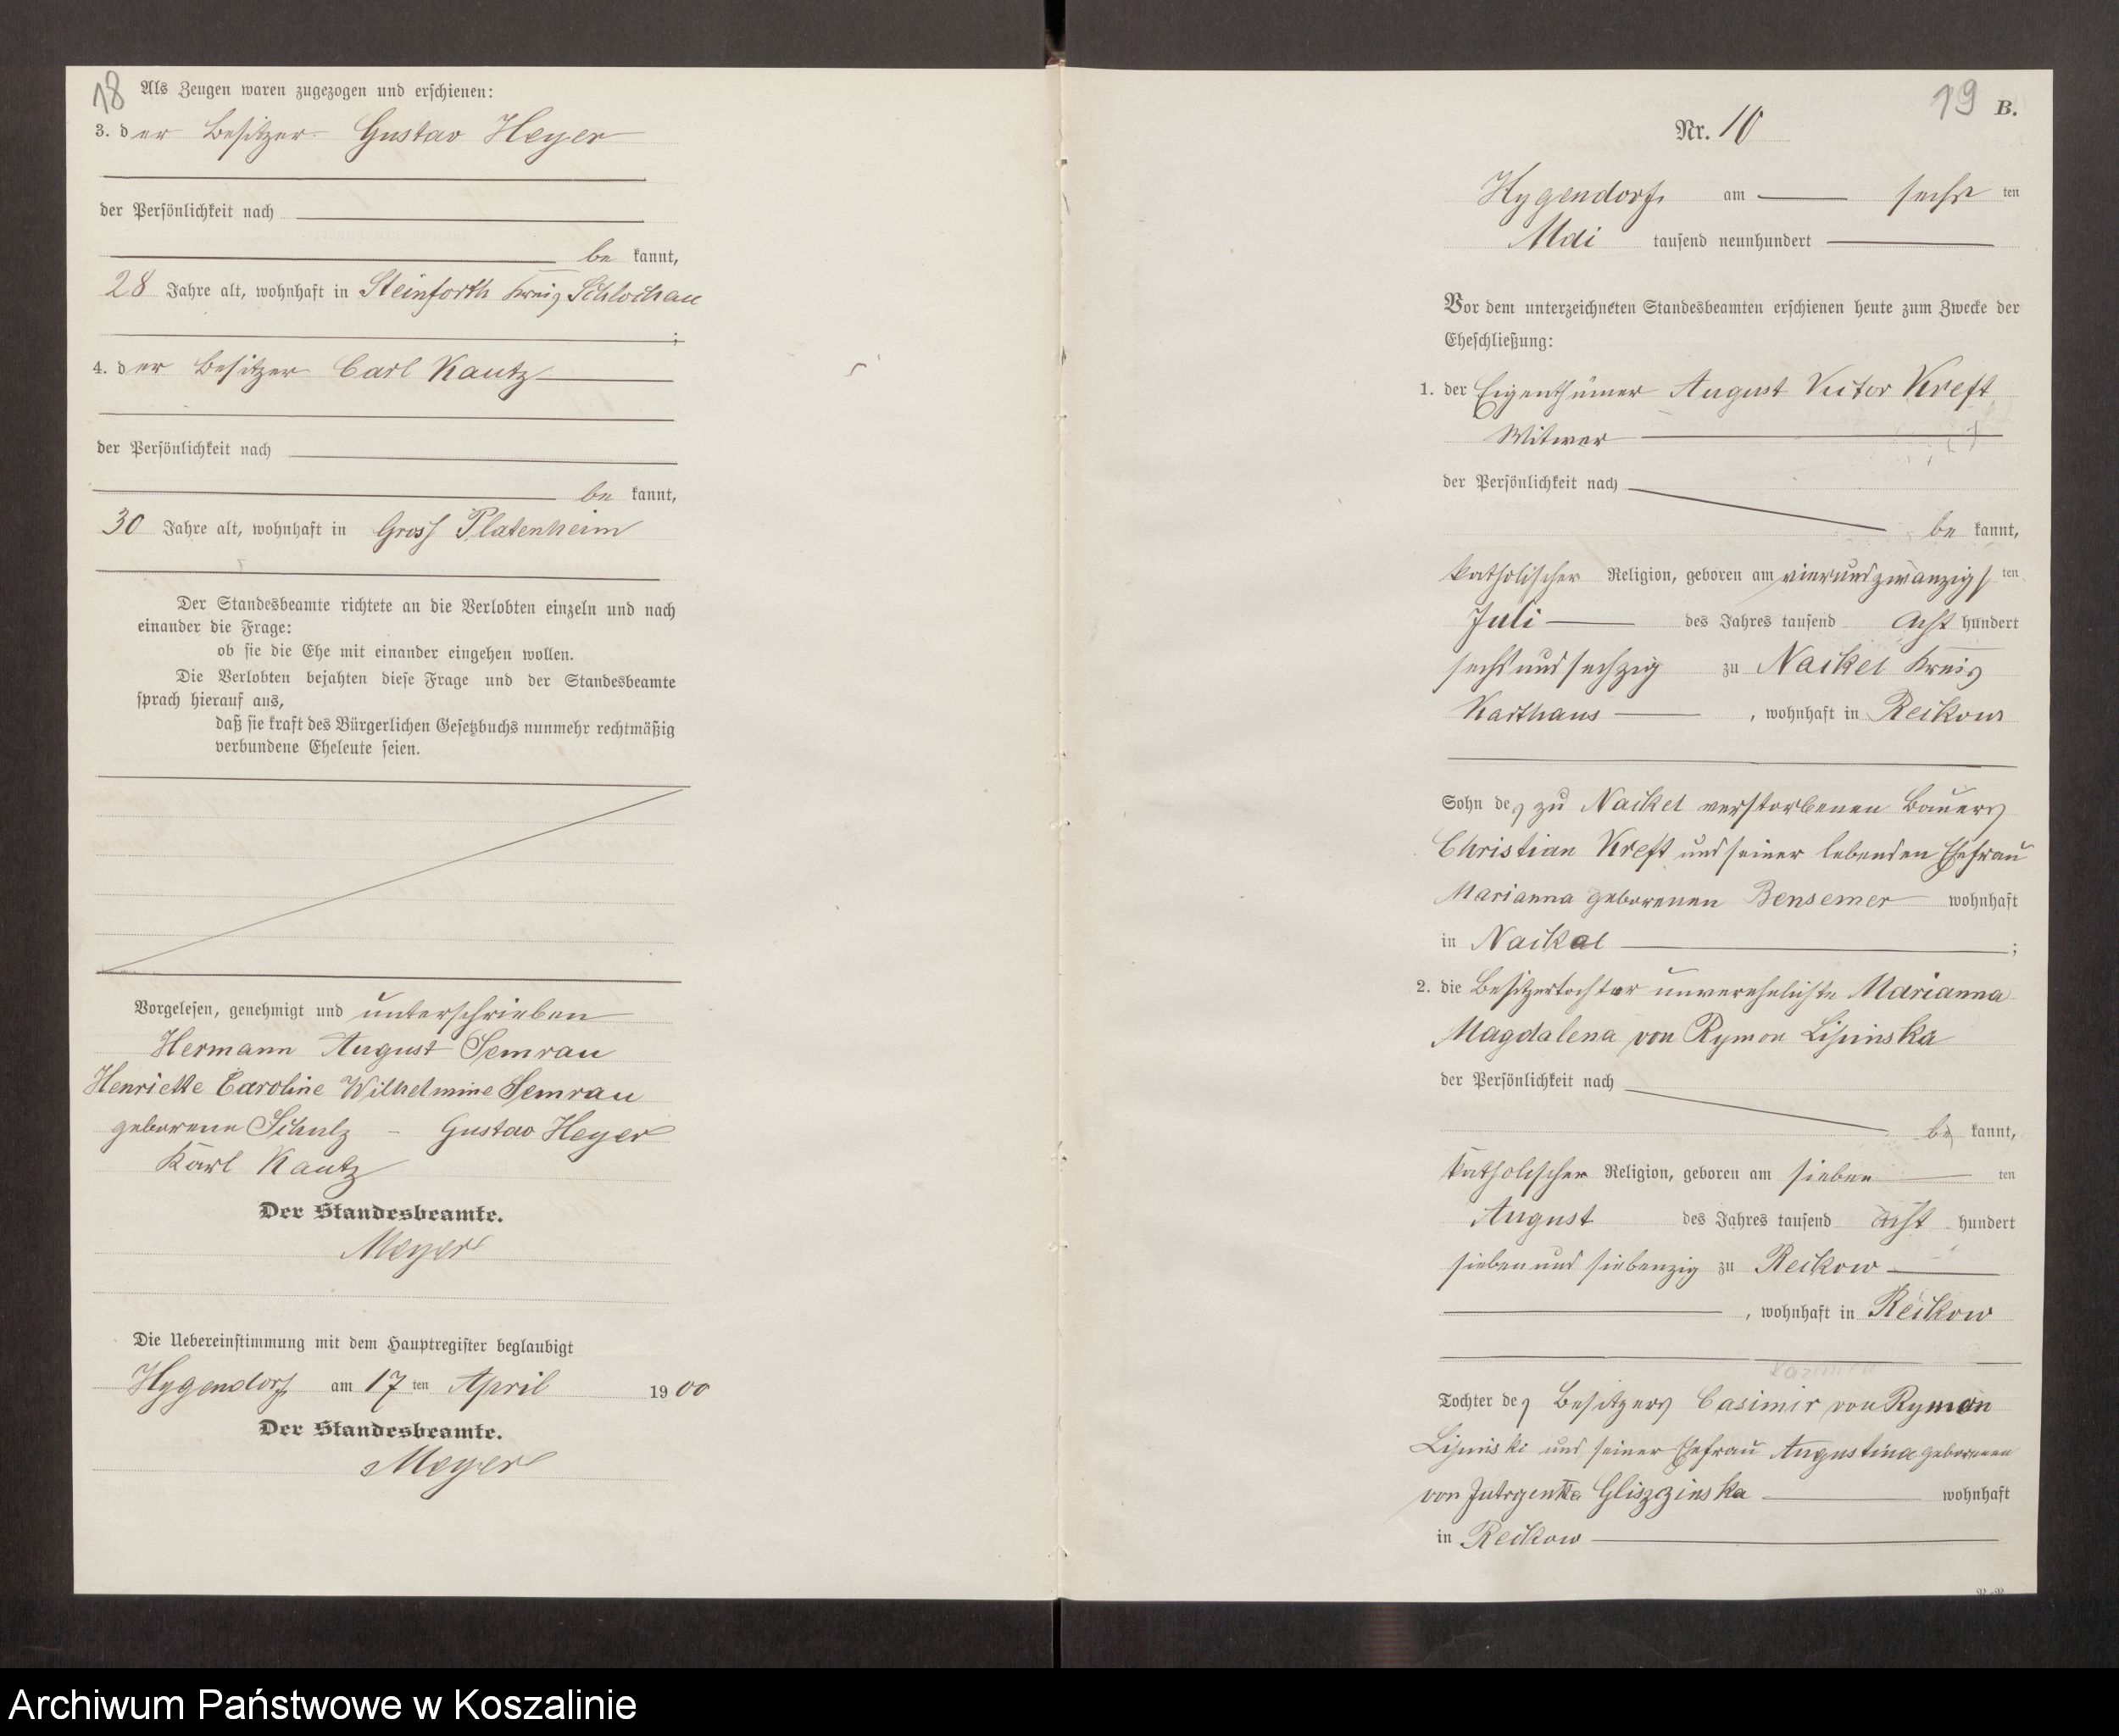 18
Als Zeugen waren zugezogen und erschienen:
3. der Besitzer Gustav Heyer
der Persönlichkeit nach
be kannt,
28 Jahre alt, wohnhaft in Steinforth Kreis Schlochau
;
4. der Besitzer Carl Kautz
der Persönlichkeit nach
be kannt,
30 Jahre alt, wohnhaft in Gross Platenheim
Der Standesbeamte richtete an die Verlobten einzeln und nach
einander die Frage:
ob sie die Ehe mit einander eingehen wollen.
Die Verlobten bejahten diese Frage und der Standesbeamte
sprach hierauf aus,
daß sie kraft des Bürgerlichen Gesetzbuchs nunmehr rechtmäßig
verbundene Eheleute seien.
Vorgelesen, genehmigt und unterschrieben
Hermann August Semrau
Henriette Caroline Wilhelmine Semrau
geborene Schulz – Gustav Heyer
Karl Kautz
Der Standesbeamte.
Meyer
Die Uebereinstimmung mit dem Hauptregister beglaubigt
Hygendorf am 17 ten April 1900
Der Standesbeamte.
Meyer
19 B.
Nr. 10
Hygendorf am sechs ten
Mai tausend neunhundert
Vor dem unterzeichneten Standesbeamten erschienen heute zum Zwecke der
Eheschließung:
1. der Eigenthümer August Victor Kreft
Witwer
der Persönlichkeit nach
be kannt,
katholischer Religion, geboren am vierundzwanzigs ten
Juli des Jahres tausend acht hundert
sechs und sechzig zu Naikel Kreis
Karthaus , wohnhaft in Reikow
Sohn des zu Naikel verstorbenen Bauers
Christian Kreft und seiner lebenden Ehefrau
Marianna geborenen Bensemer wohnhaft
in Naikel ;
2. die Besitzertochter unverehelichte Marianna
Magdalena von Rymon Lipinska
der Persönlichkeit nach
be kannt,
katholischer Religion, geboren am sieben ten
August des Jahres tausend acht hundert
sieben und siebenzig zu Reikow
, wohnhaft in Reikow
Tochter des Besitzers Casimir von Rymon
Lipinski und seiner Ehefrau Augustina geborenen
von Jutrzenka Gliszginska wohnhaft
in Reikow
Archiwum Państwowe w Koszalinie